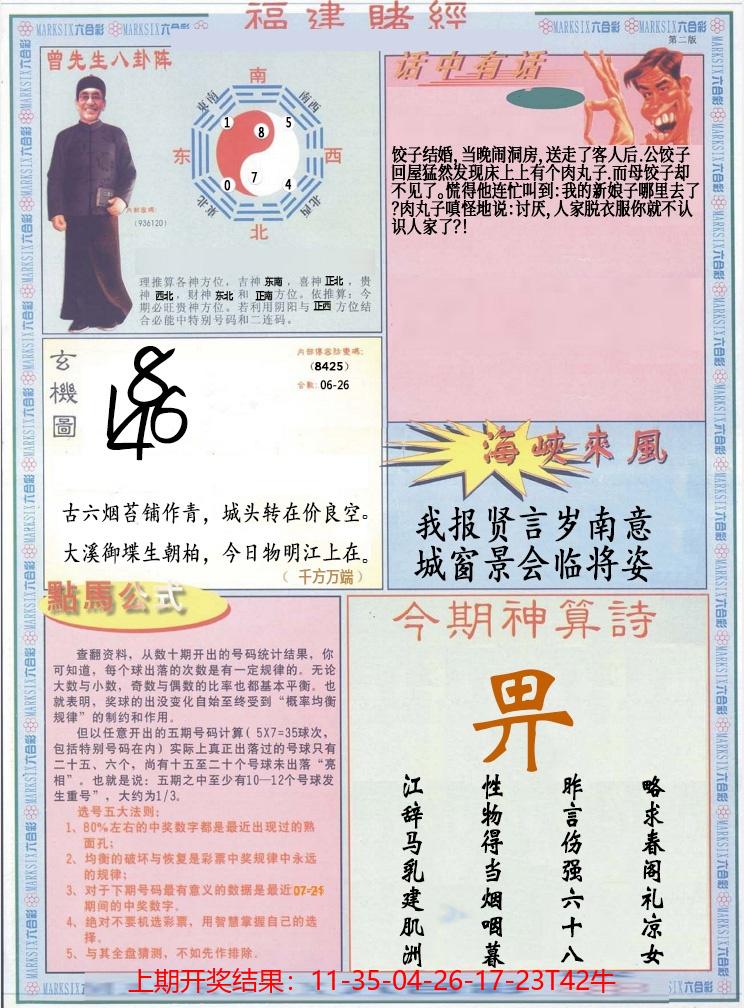 福建賭經
MARKSIX六合彩 MARKSIX六合彩 MARKSIX六合彩 MARKSIX六合彩
第二版
曾先生八卦阵
南
東南
南西
1
8
5
东
西
0
7
4
東北
北西
北
内部密碼:
(936120)
理推算各神方位，吉神 东南 ，喜神 正北，贵
神 西北，财神 东北 和 正南 方位。依推算：今
期必旺贵神方位。若利用阴阳与 正西 方位结
合必能中特别号码和二连码。
话中有话
饺子结婚,当晚闹洞房,送走了客人后.公饺子
回屋猛然发现床上上有个肉丸子.而母饺子却
不见了。慌得他连忙叫到:我的新娘子哪里去了
?肉丸子嗔怪地说:讨厌,人家脱衣服你就不认
识人家了?!
玄機圖
8
146
内部傳密防更碼:
(8425)
合數: 06-26
古六烟苔铺作青，城头转在价良空。
大溪御堞生朝柏，今日物明江上在。
（ 千方万端 ）
海峽來風
我报贤言岁南意
城窗景会临将姿
點馬公式
查翻资料，从数十期开出的号码统计结果，你
可知道，每个球出落的次数是有一定规律的。无论
大数与小数，奇数与偶数的比率也都基本平衡。也
就表明，奖球的出没变化自始至终受到“概率均衡
规律”的制约和作用。
但以任意开出的五期号码计算( 5X7=35球次，
包括特别号码在内）实际上真正出落过的号球只有
二十五、六个，尚有十五至二十个号球未出落“亮
相”。也就是说：五期之中至少有10—12个号球发
生重号”，大约为1/3。
选号五大法则：
1、80%左右的中奖数字都是最近出现过的熟
面孔；
2、均衡的破坏与恢复是彩票中奖规律中永远
的规律；
3、对于下期号码最有意义的数据是最近07-21
期间的中奖数字。
4、绝对不要机选彩票，用智慧掌握自己的选
择。
5、与其全盘猜测，不如先作排除．
今期神算詩
畀
略求春阁礼凉女
昨言伤强六十八
性物得当烟咽暮
江辞马乳建肌洲
上期开奖结果：11-35-04-26-17-23T42牛